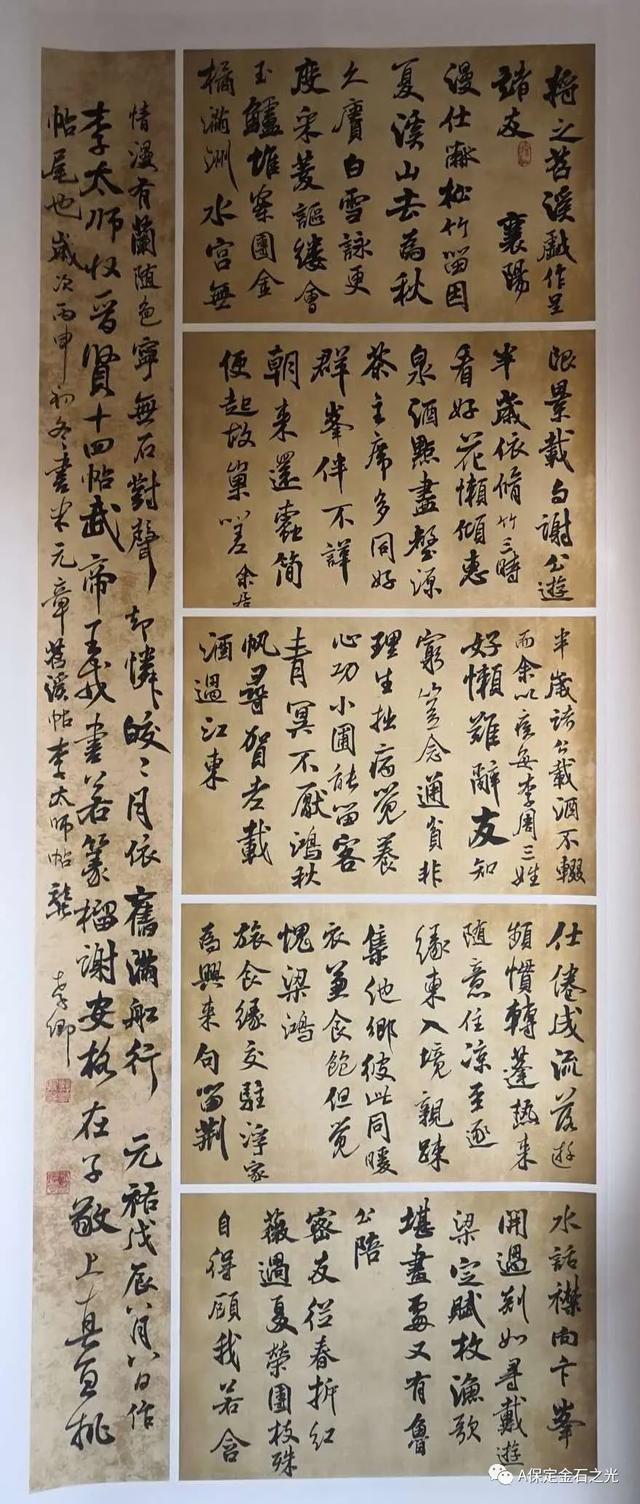 將之苕溪戲作呈
諸友 襄陽
漫仕黻松竹留因
夏溪山去為秋
久賡白雪詠更
度采菱謳縷會
玉鱸堆案團金
橘滿洲水宮無
限景載與謝公遊
半歲依脩竹三時
看好花懶傾惠
泉酒點盡壑源
茶主席多同好
群峯伴不譁
朝來還蠹簡
便起故巢嗟 余居
半歲諸公載酒不輟
而余以疾每李周三姓
好懶難辭友知
窮豈念通貧非
理生拙病覺養
心功小圃能留客
青冥不厭鴻秋
帆尋賀老載
酒過江東
仕倦成流落游
頻慣轉蓬熱來
隨意住凉至逐
緣東入境親疎
集他鄉彼此同暖
衣兼食飽但覺
愧梁鴻
旅食緣交駐浮家
為興來句留荆
水話襟向卞峯
開過剡如尋戴遊
梁定賦枚漁歌
堪畫處又有魯
公陪
密友從春拆紅
薇過夏榮團枝殊
自得顧我若含
情漫有蘭随色寧無石對聲却憐皎々月依舊滿船行 元祐戊辰八月八日作
李太師收晉賢十四帖武帝王戎書若篆籀謝安格在子敬上真百挑
帖尾也歲次丙申初冬書米元章苕溪帖李太師帖
A保定金石之光